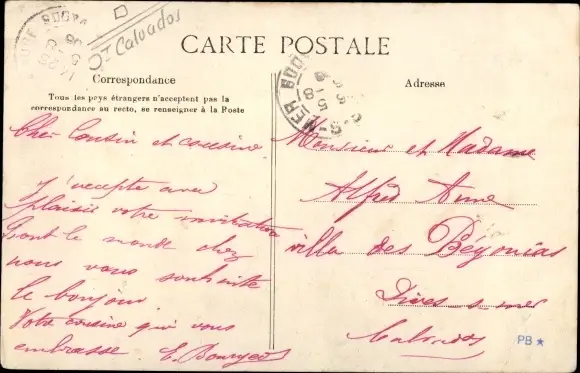 Ct Calvados
CARTE POSTALE
Correspondance
Tous les pays étrangers n'acceptent pas la
correspondance au recto, se renseigner à la Poste
Adresse
Cher Cousin et cousine
J'accepte avec
plaisir votre invitation
tout le monde chez
nous vous souhaite
le bonjour.
Votre cousine qui vous
embrasse E.
Monsieur et Madame
Alfred
villa des Bégonias
Dives-s-mer
Calvados
PB